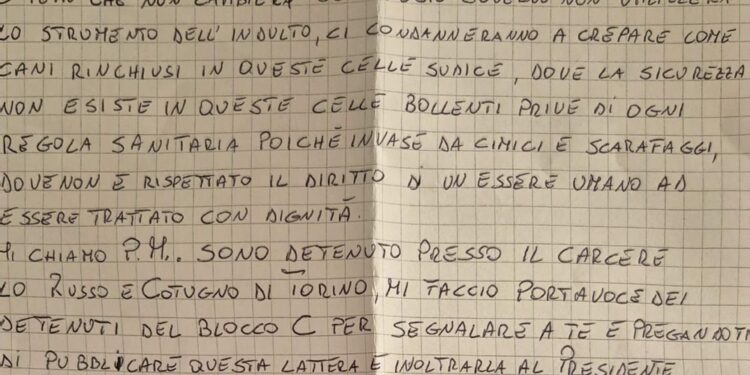 CHE NON
LO STRUMENTO DELL'INDULTO, CI CONDANNERANNO A CREPARE COME
CANI RINCHIUSI IN QUESTE CELLE SUDICE, DOVE LA SICUREZZA
NON ESISTE IN QUESTE CELLE BOLLENTI PRIVE DI OGNI
REGOLA SANITARIA POICHÉ INVASE DA CIMICI E SCARAFAGGI,
DOVE NON È RISPETTATO IL DIRITTO DI UN ESSERE UMANO AD
ESSERE TRATTATO CON DIGNITÀ.
MI CHIAMO P.M.. SONO DETENUTO PRESSO IL CARCERE
LO RUSSO E COTUGNO DI TORINO, MI FACCIO PORTAVOCE DEI
DETENUTI DEL BLOCCO C PER SEGNALARE A TE E PREGANDOTI
DI PUBBLICARE QUESTA LATTERA E INOLTRARLA AL PRESIDENTE